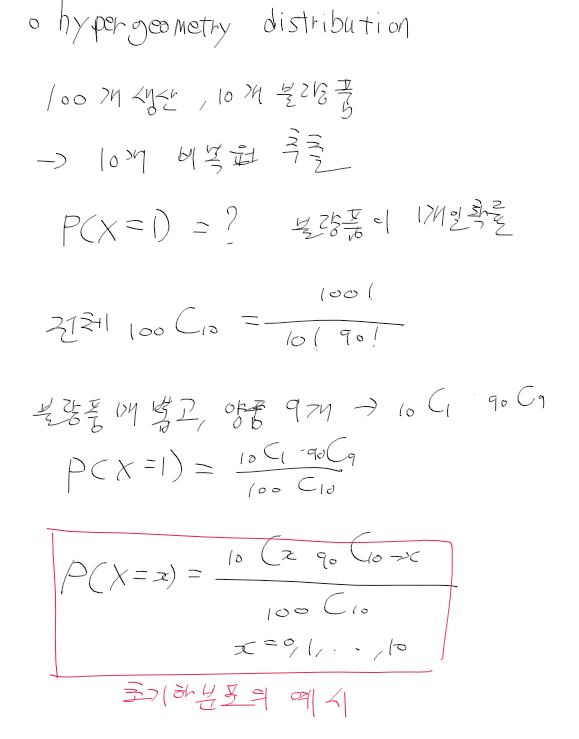 o hypergeometry distribution
100개 생산, 10개 불량품
→ 10개 비복원 추출
P(X=1) = ? 불량품이 1개일 확률
전체 100C10 = 100! / 10! 90!
불량품 1개 뽑고, 양품 9개 → 10C1 · 90C9
P(X=1) = 10C1 · 90C9 / 100C10
P(X=x) = 10Cx 90C10-x / 100C10
x=0,1,...,10
초기하분포의 예시